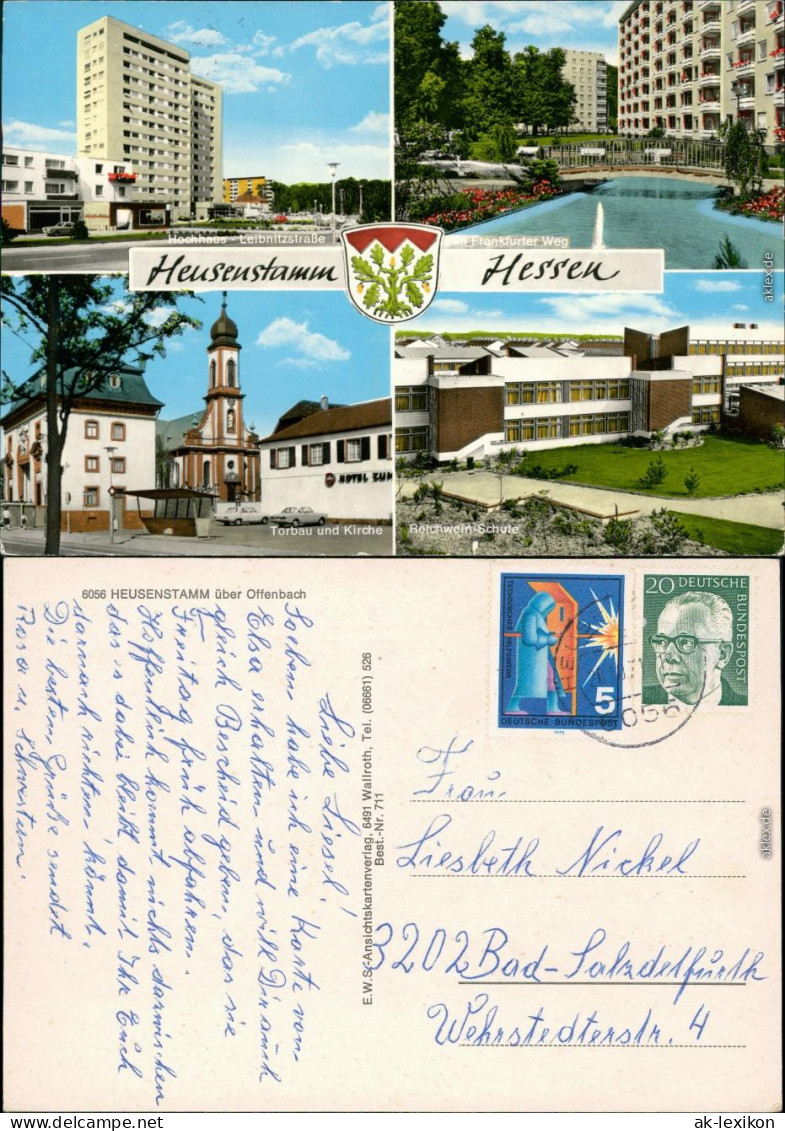 Hochhaus - Leibnitzstraße
Frankfurter Weg
Heusenstamm Hessen
HOTEL ZUM
Torbau und Kirche
Reichwein-Schule
aklex.de
6056 HEUSENSTAMM über Offenbach
Liebe Liesel!
Soeben habe ich eine Karte von
Elsa erhalten und will Dir auch
gleich Bescheid geben, das sie
Freitag früh abfahren.
Hoffentlich kommt nichts dazwischen
das's dabei bleibt damit Ihr Euch
darnach richten könnt.
Die besten Grüße sendet
Rosa u. Schwestern.
E.W.S.-Ansichtskartenverlag, 6491 Wallroth, Tel. (06661) 526
Best.-Nr. 711
TECHNISCHES HILFSWERK
5
DEUTSCHE BUNDESPOST
1970
20 DEUTSCHE
BUNDESPOST
6056
Frau
Liesbeth Nickel
3202 Bad-Salzdetfurth
Wehrstedterstr. 4
aklex.de
www.ansichtskarten-lexikon.de
ak-lexikon